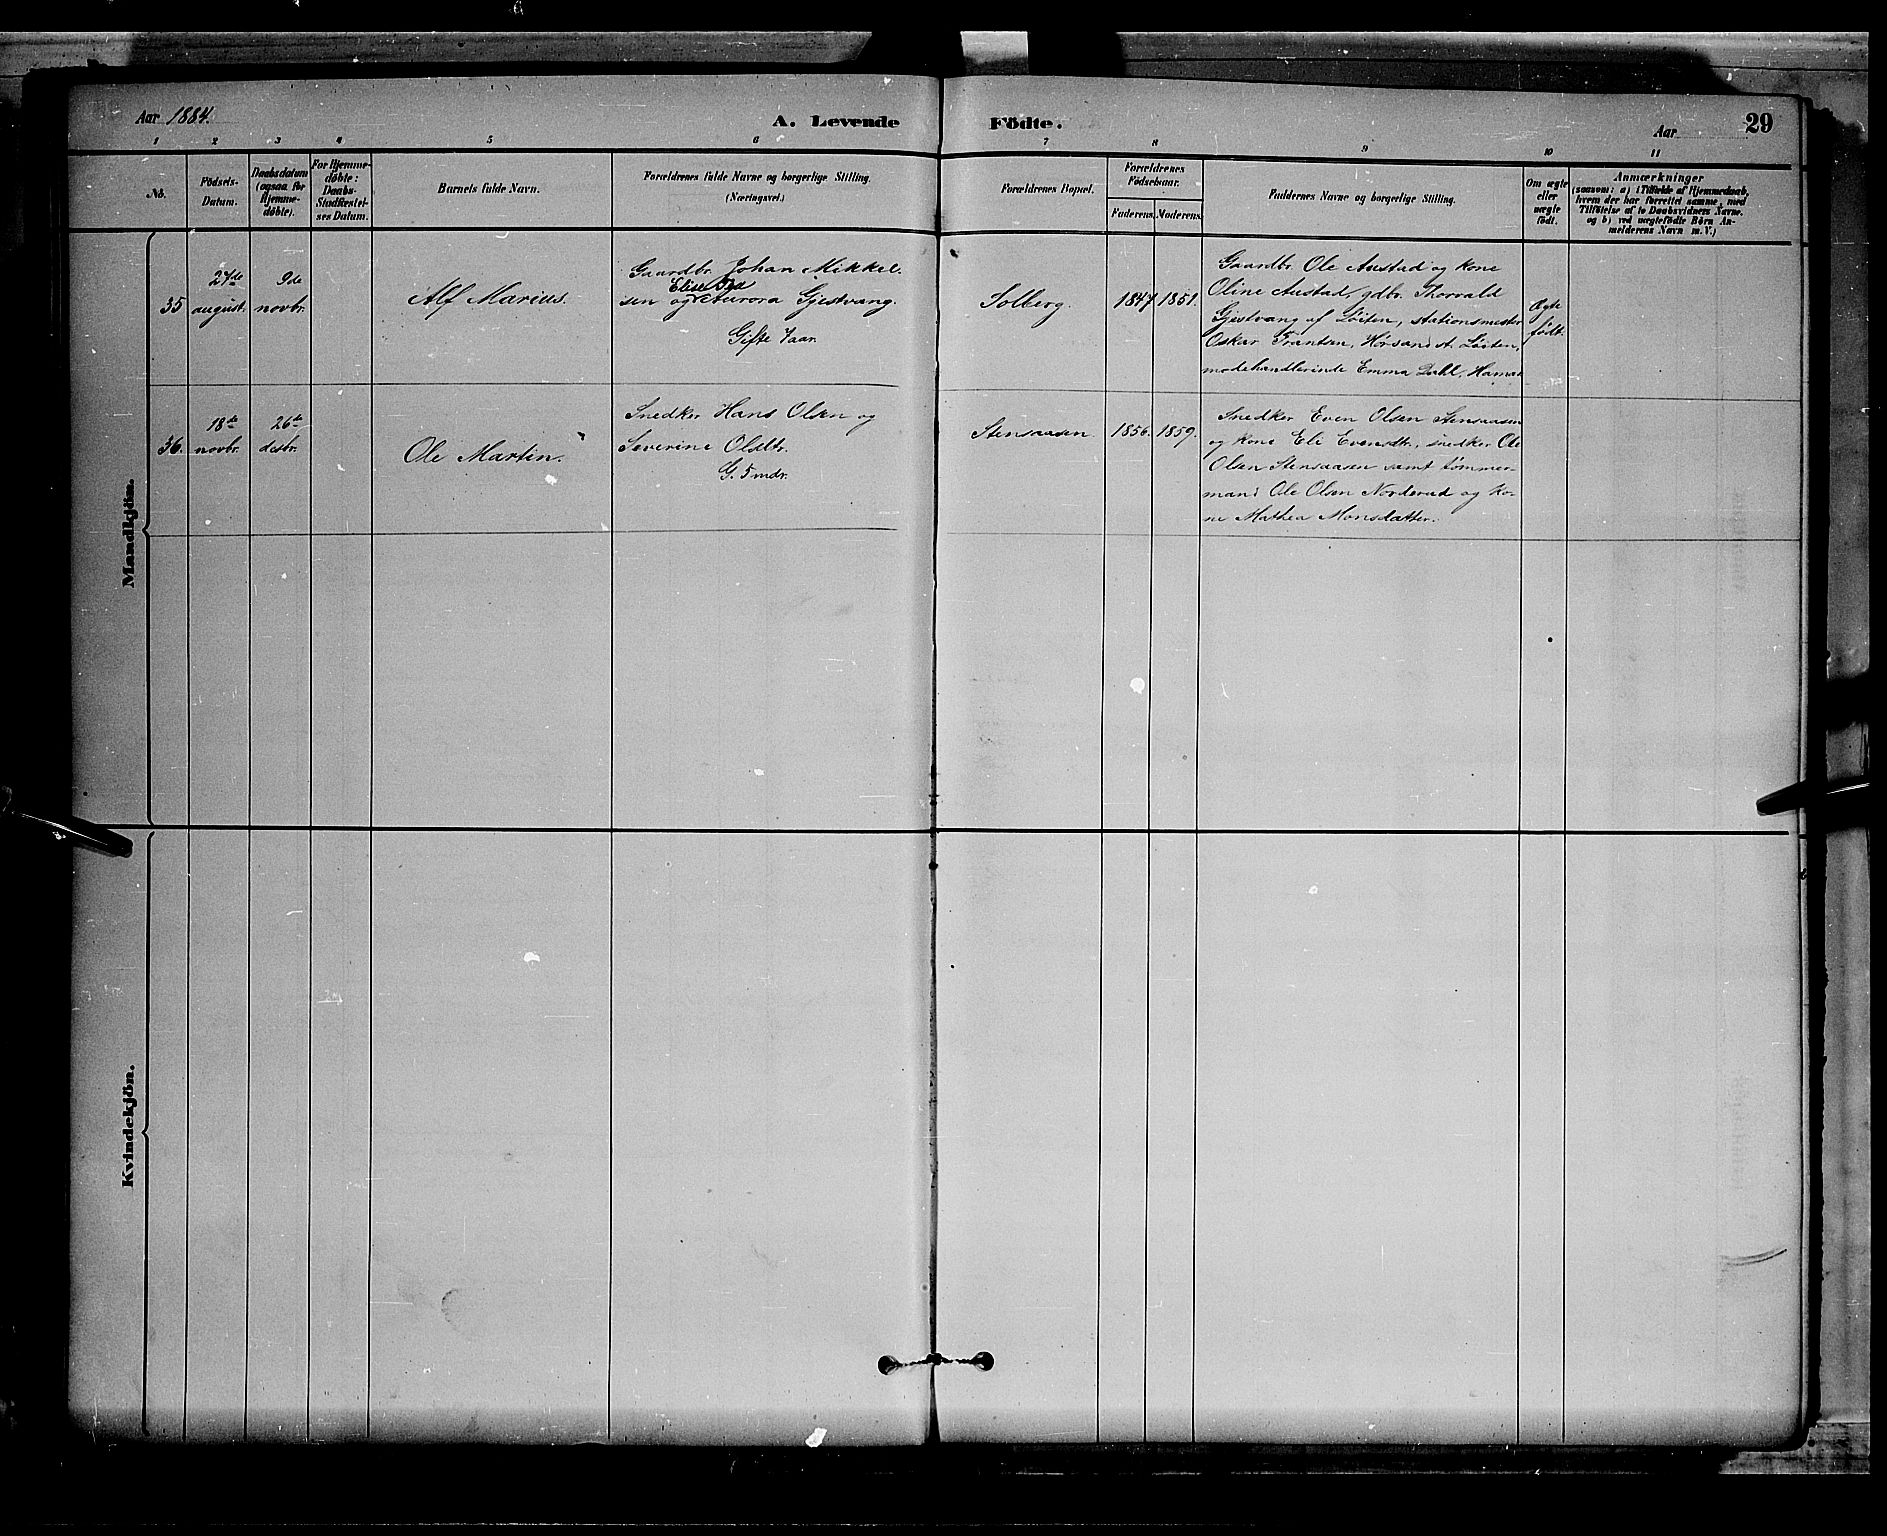 Aar 1884.
A. Levende
Födte.
Aar
29
1 2 3 4 5 6 7 8 9 10 11
No.
Födsels-
Datum.
Daabsdatum
(ogsaa for
Hjemme-
døbte).
For Hjemme-
døbte:
Daabs-
Stadfæstel-
ses Datum.
Barnets fulde Navn.
Forældrenes fulde Navne og borgerlige Stilling.
(Næringsvei.)
Forældrenes Bopæl.
Forældrenes
Födselsaar.
Faderens.
Moderens.
Faddernes Navne og borgerlige Stilling.
Om ægte
eller
uægte
födt.
Anmærkninger
(saasom: a) i Tilfælde af Hjemmedaab,
hvem der har forrettet samme, med
Tilföielse af to Daabsvidners Navne.
og b) ved uægtefödte Börn An-
melderens Navn m. V.)
Mandkjön.
35
27de
august.
9de
novbr.
Alf Marius.
Gaardbr. Johan Mikkel-
Elise
sen og Aurora Gjestvang.
Gifte 7 aar.
Solberg.
1847.
1851.
Gaardbr. Ole Austad og kone
Oline Austad, gdbr. Thorvald
Gjestvang af Løiten, stationsmester
Oskar Frantsen, Hørsand st. Løiten,
modehandlerinde Emma Dahl, Hamar
Ægte
født.
36.
18de
novbr.
26de
desbr.
Ole Martin.
Snedker Hans Olsen og
Severine Olsdtr.
G. 5 mdr.
Stensaasen.
1856.
1859.
Snedker Even Olsen Stensaasen
og kone Eli Evensdtr., snedker Ole
Olsen Stensaasen samt tømmer-
mand Ole Olsen Norderud og ko-
ne Mathea Monsdatter.
Kvindekjön.